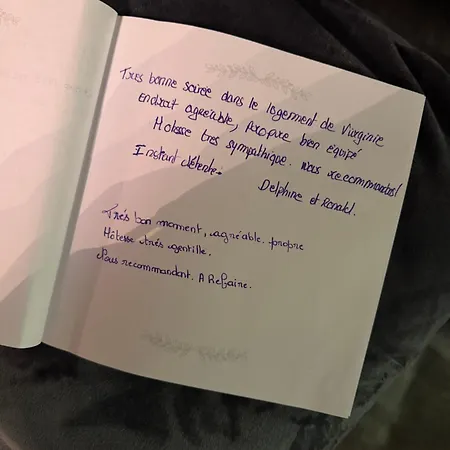 Très bonne soirée dans le logement de Virginie
endroit agréable, propre bien équipé
Hotesse très sympathique. nous recommandons!
Instant détente.
Delphine et Ronald.
Très bon moment, agréable. propre
Hôtesse très gentille.
Nous recommandont. A Refaire.